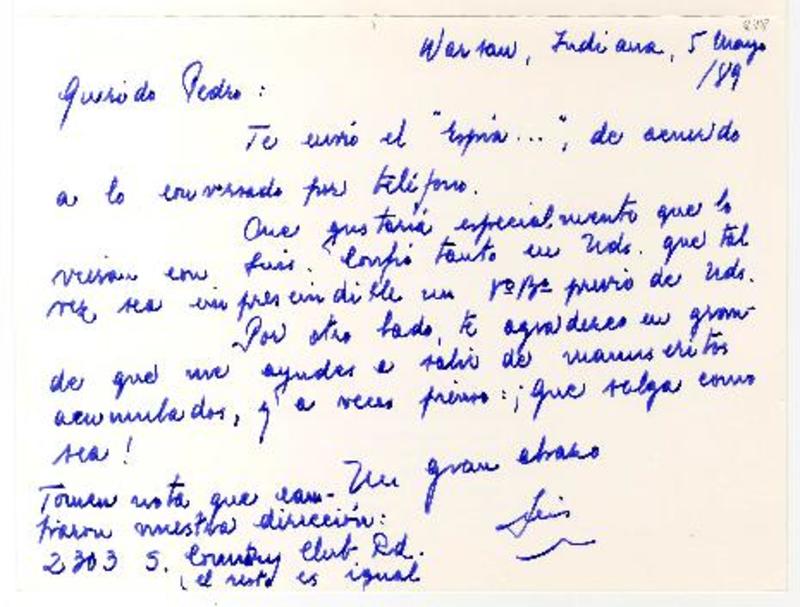 Warsaw, Indiana, 5 Mayo
/89
Querido Pedro:
Te envio el "Espía...", de acuerdo
a lo conversado por teléfono.
Me gustaría especialmente que lo
vieran con Luis. Confío tanto en Uds. que tal
vez sea imprescindible un VºBº previo de Uds.
Por otro lado, te agradezco en gran-
de que me ayudes a salir de manuscritos
acumulados, y a veces pienso: ¡Que salga como
sea!
Un gran abrazo
Tomen nota que cam-
biaron nuestra dirección:
2303 S. Country Club Rd.
(el resto es igual